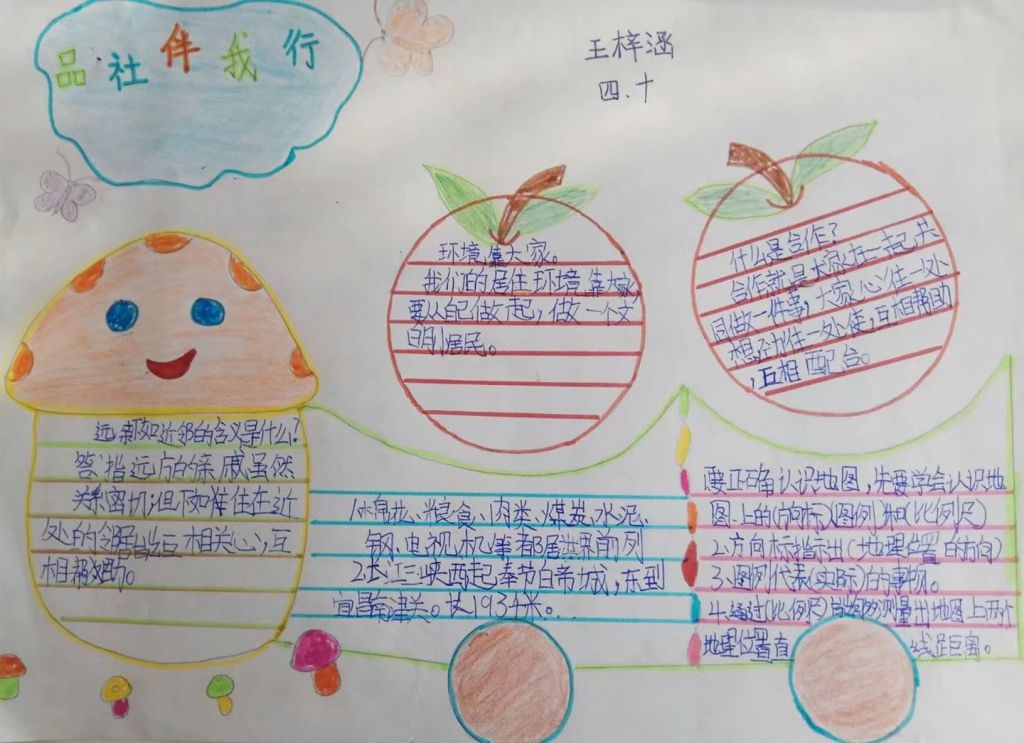 品社伴我行
王梓涵
四、十
环境靠大家。
我们的居住环境靠大家,
要从自己做起,做一个文
明居民。
什么是合作?
合作就是大家在一起,共
同做一件事,大家心往一处
想,劲往一处使,互相帮助
,互相配合。
远亲不如近邻的含义是什么?
答:指远方的亲戚虽然
关系密切;但不如住在近
处的邻居互相关心,互
相帮助。
粮食、肉类、煤炭、水泥、
钢、电视机等都居世界前列
2.长江三峡西起奉节白帝城,东到
宜昌南津关。长193千米。
要正确认识地图,先要学会认识地
图上的(方向标)(图例)和(比例尺)
2.方向标指示出(地理位置的方向)
3.图例代表(实际)的事物。
4.通过(比例尺)能够测量出地图上两个
地理位置直线距离。